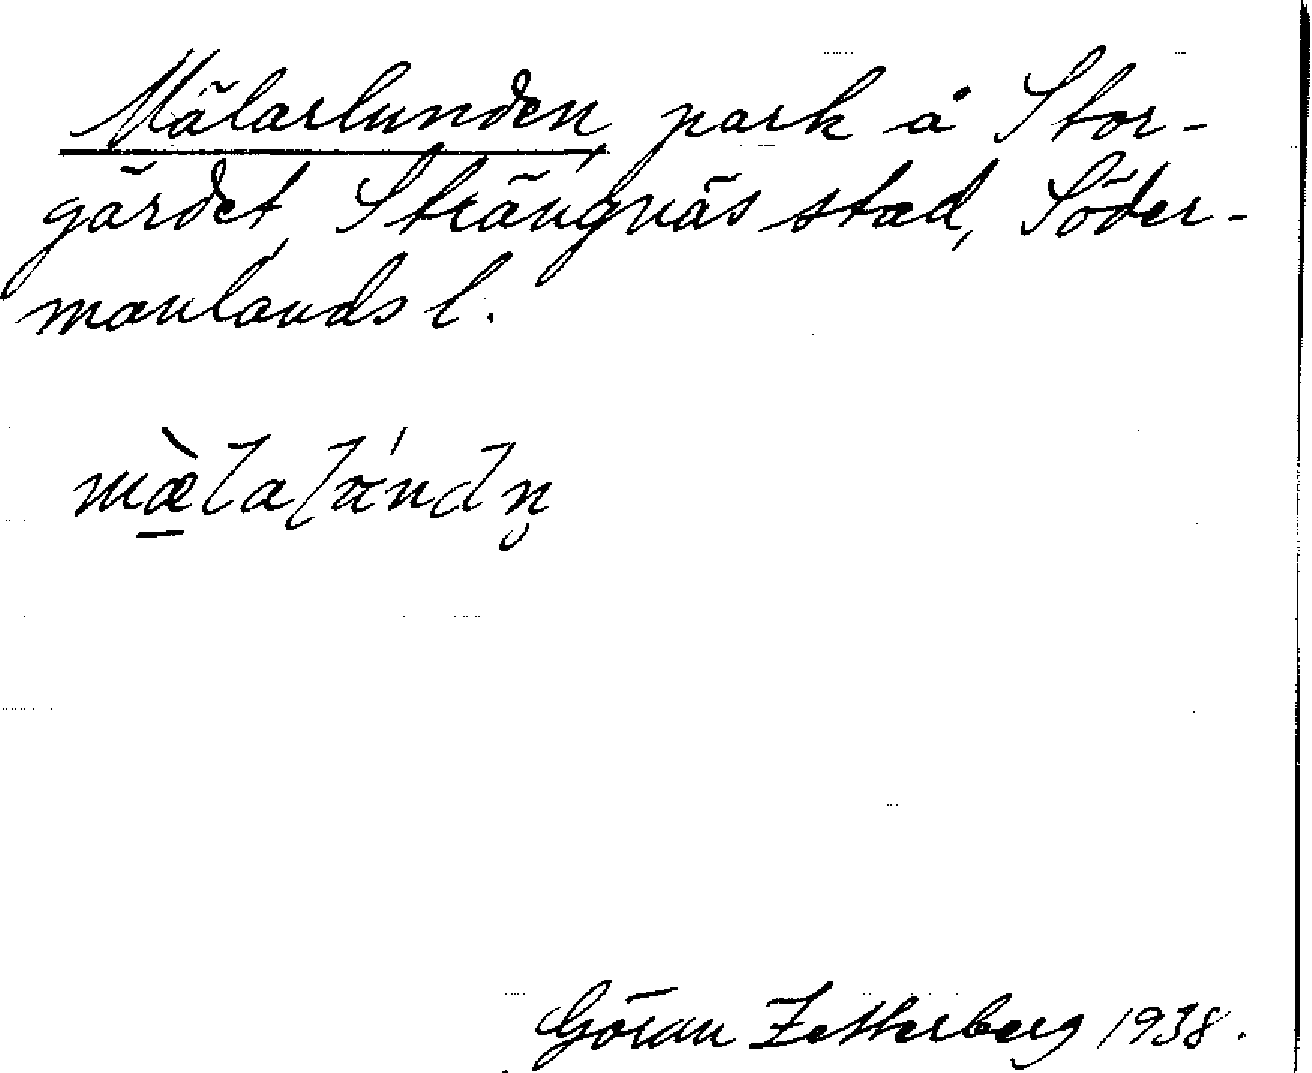 Mälarlunden, park å Stor-
gärdet, Strängnäs stad, Söder-
manlands l.
Göran Zetterberg 1938.